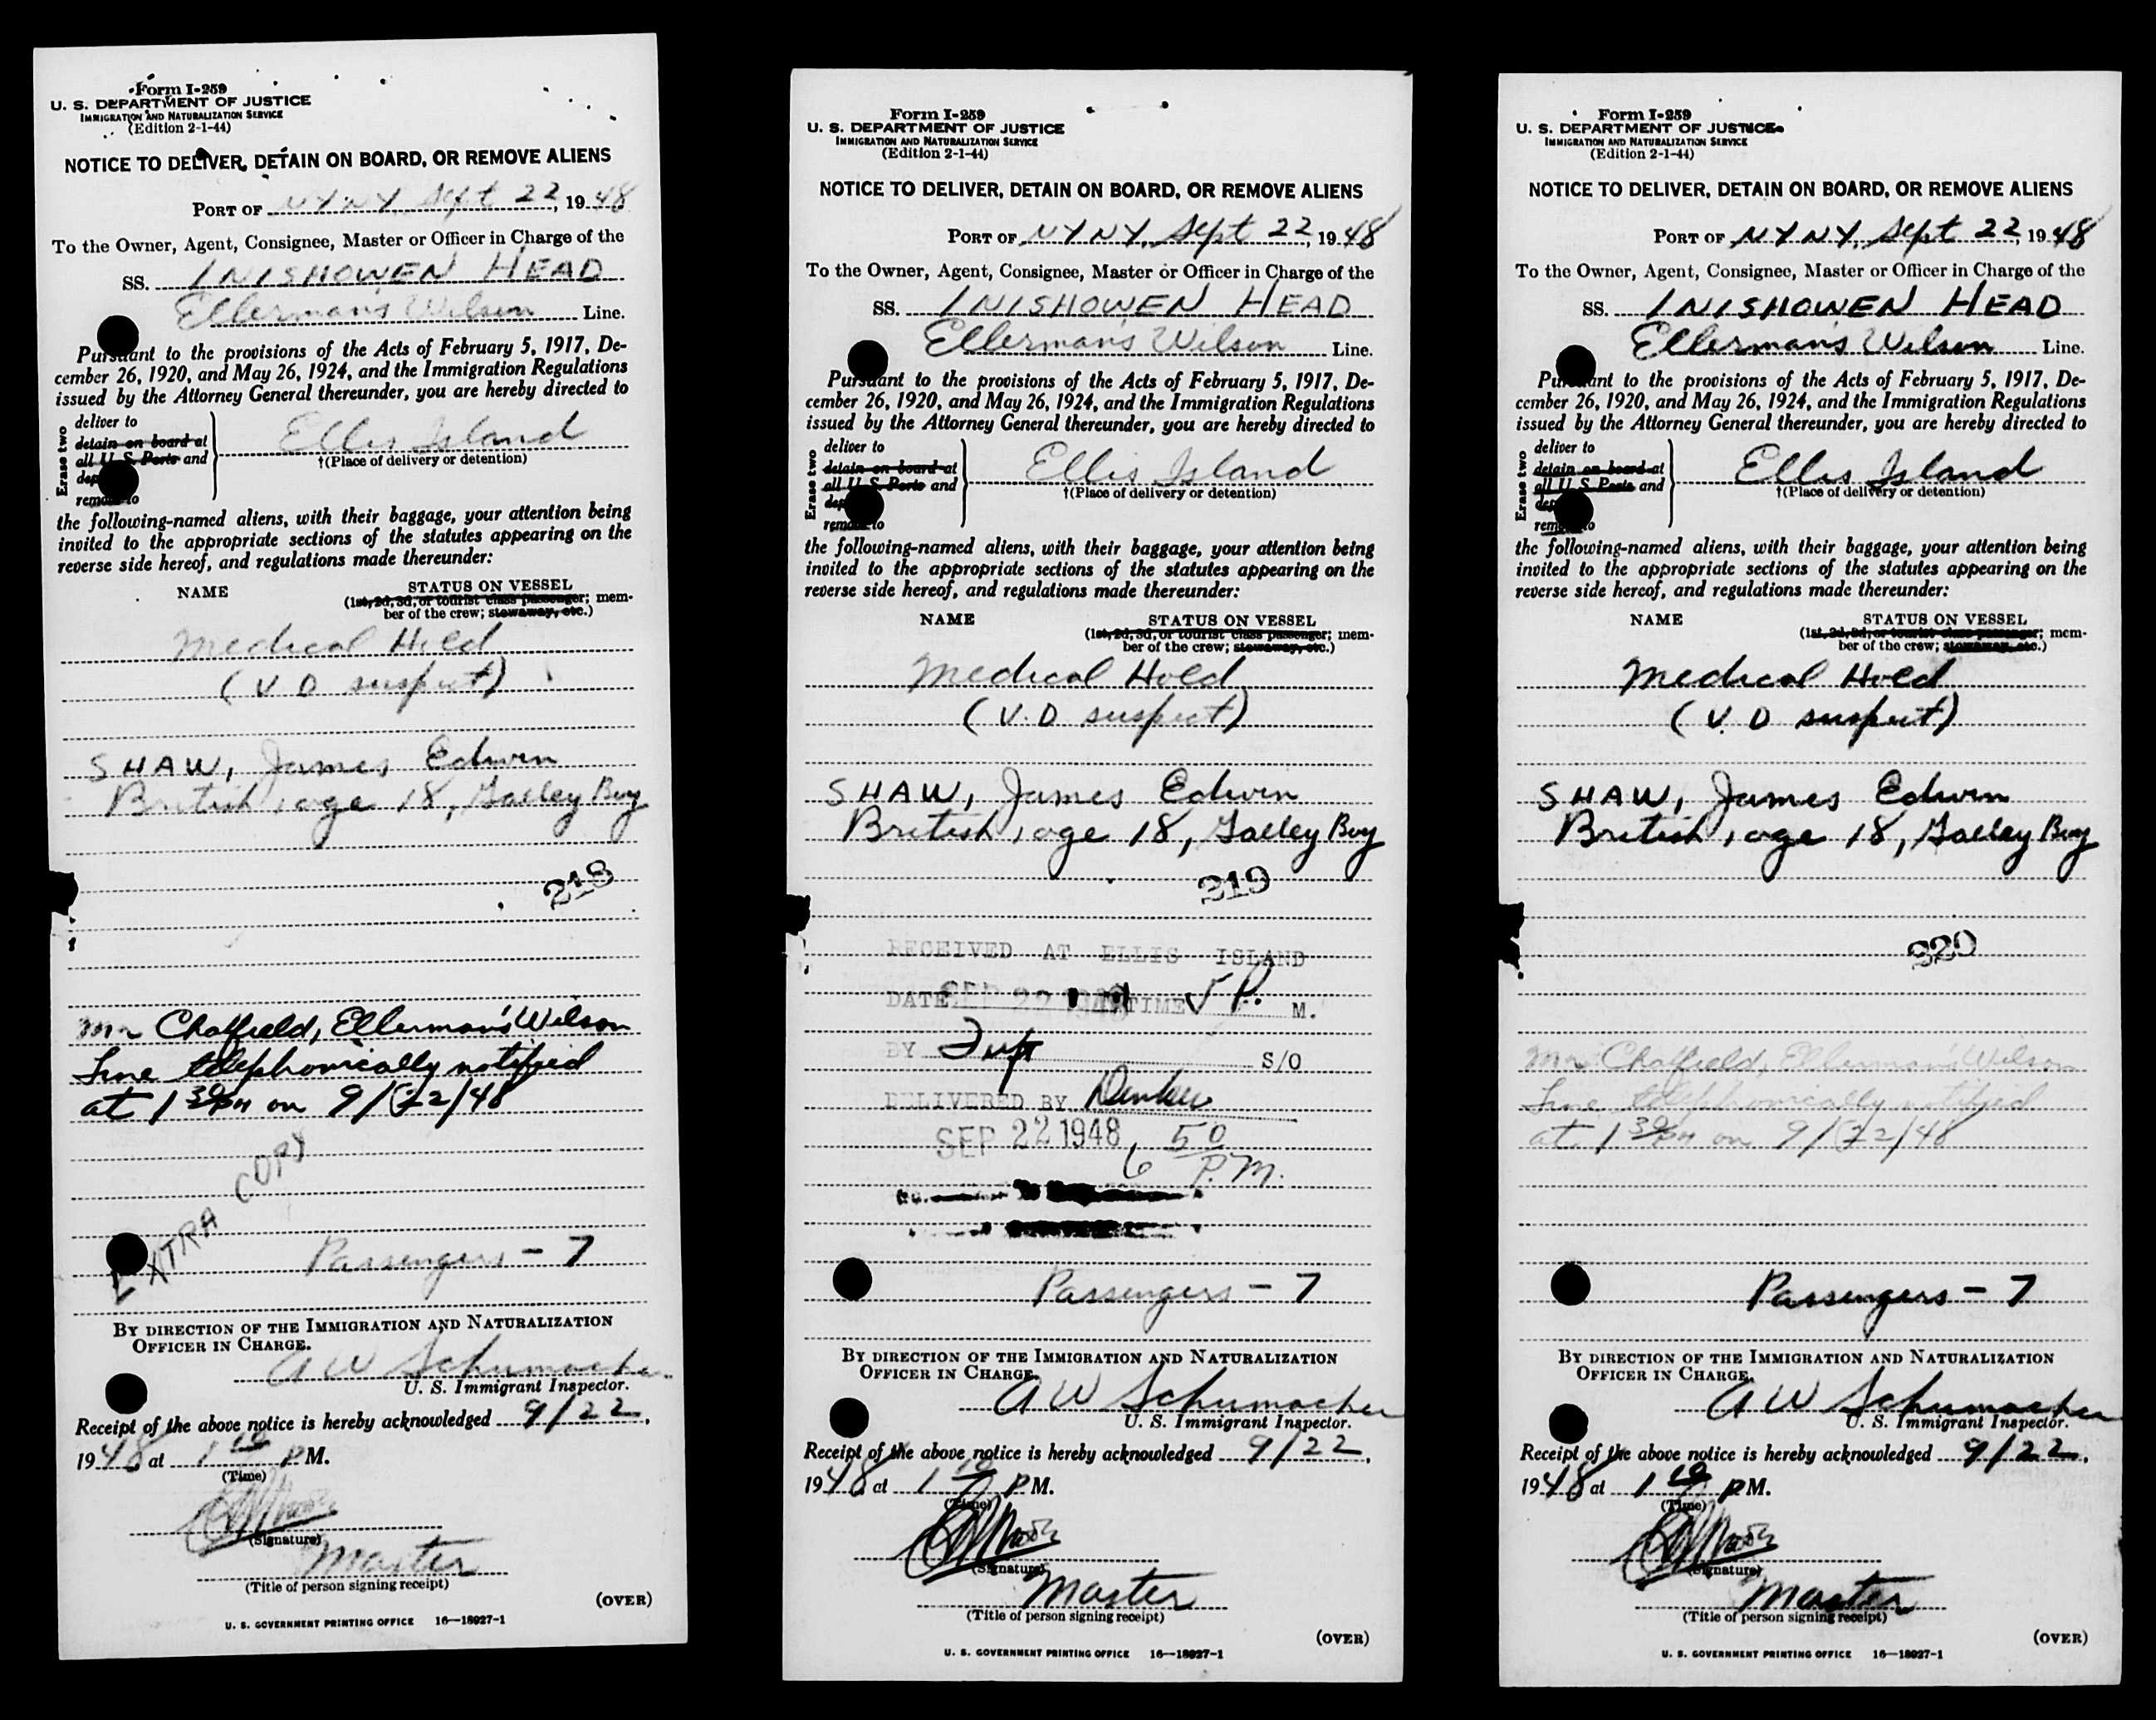 Form I-259
U. S. DEPARTMENT OF JUSTICE
IMMIGRATION AND NATURALIZATION SERVICE
(Edition 2-1-44)
NOTICE TO DELIVER, DETAIN ON BOARD, OR REMOVE ALIENS
PORT OF NY NY, Sept 22, 1948
To the Owner, Agent, Consignee, Master or Officer in Charge of the
SS. INISHOWEN HEAD
Ellerman's Wilson Line.
Pursuant to the provisions of the Acts of February 5, 1917, De-
cember 26, 1920, and May 26, 1924, and the Immigration Regulations
issued by the Attorney General thereunder, you are hereby directed to
Erase two
deliver to
detain on board at
all U. S. Ports and
remove to
Ellis Island
†(Place of delivery or detention)
the following-named aliens, with their baggage, your attention being
invited to the appropriate sections of the statutes appearing on the
reverse side hereof, and regulations made thereunder:
NAME STATUS ON VESSEL
(1st, 2d, 3d, or tourist class passenger; mem-
ber of the crew; stowaway, etc.)
Medical Hold
(V D suspect)
SHAW, James Edwin
British, age 18, Galley Boy
218
Mr Chatfield, Ellerman's Wilson
Line telephonically notified
at 1 30 PM on 9/22/48
EXTRA COPY
Passengers - 7
BY DIRECTION OF THE IMMIGRATION AND NATURALIZATION
OFFICER IN CHARGE.
A W Schumacher
U. S. Immigrant Inspector.
Receipt of the above notice is hereby acknowledged 9/22,
1948 at 1 10 PM.
(Time)
(Signature)
Master
(Title of person signing receipt)
(OVER)
U. S. GOVERNMENT PRINTING OFFICE 16—18027-1
Form I-259
U. S. DEPARTMENT OF JUSTICE
IMMIGRATION AND NATURALIZATION SERVICE
(Edition 2-1-44)
NOTICE TO DELIVER, DETAIN ON BOARD, OR REMOVE ALIENS
PORT OF NY NY, Sept 22, 1948
To the Owner, Agent, Consignee, Master or Officer in Charge of the
SS. INISHOWEN HEAD
Ellerman's Wilson Line.
Pursuant to the provisions of the Acts of February 5, 1917, De-
cember 26, 1920, and May 26, 1924, and the Immigration Regulations
issued by the Attorney General thereunder, you are hereby directed to
Erase two
deliver to
detain on board at
all U. S. Ports and
remove to
Ellis Island
†(Place of delivery or detention)
the following-named aliens, with their baggage, your attention being
invited to the appropriate sections of the statutes appearing on the
reverse side hereof, and regulations made thereunder:
NAME STATUS ON VESSEL
(1st, 2d, 3d, or tourist class passenger; mem-
ber of the crew; stowaway, etc.)
Medical Hold
(V.D suspect)
SHAW, James Edwin
British, age 18, Galley Boy
219
RECEIVED AT ELLIS ISLAND
DATE SEP 22 1948 TIME 5 P. M.
BY S/O
DELIVERED BY
SEP 22 1948 6 50
P.M.
Passengers - 7
BY DIRECTION OF THE IMMIGRATION AND NATURALIZATION
OFFICER IN CHARGE.
A W Schumacher
U. S. Immigrant Inspector.
Receipt of the above notice is hereby acknowledged 9/22,
1948 at 1 10 PM.
(Time)
(Signature)
Master
(Title of person signing receipt)
(OVER)
U. S. GOVERNMENT PRINTING OFFICE 16—18027-1
Form I-259
U. S. DEPARTMENT OF JUSTICE
IMMIGRATION AND NATURALIZATION SERVICE
(Edition 2-1-44)
NOTICE TO DELIVER, DETAIN ON BOARD, OR REMOVE ALIENS
PORT OF NY NY, Sept 22, 1948
To the Owner, Agent, Consignee, Master or Officer in Charge of the
SS. INISHOWEN HEAD
Ellerman's Wilson Line.
Pursuant to the provisions of the Acts of February 5, 1917, De-
cember 26, 1920, and May 26, 1924, and the Immigration Regulations
issued by the Attorney General thereunder, you are hereby directed to
Erase two
deliver to
detain on board at
all U. S. Ports and
remove to
Ellis Island
†(Place of delivery or detention)
the following-named aliens, with their baggage, your attention being
invited to the appropriate sections of the statutes appearing on the
reverse side hereof, and regulations made thereunder:
NAME STATUS ON VESSEL
(1st, 2d, 3d, or tourist class passenger; mem-
ber of the crew; stowaway, etc.)
Medical Hold
(V.D suspect)
SHAW, James Edwin
British, age 18, Galley Boy
220
Mr Chatfield, Ellerman's Wilson
Line telephonically notified
at 1 30 PM on 9/22/48
Passengers - 7
BY DIRECTION OF THE IMMIGRATION AND NATURALIZATION
OFFICER IN CHARGE.
A W Schumacher
U. S. Immigrant Inspector.
Receipt of the above notice is hereby acknowledged 9/22,
1948 at 1 10 PM.
(Time)
(Signature)
Master
(Title of person signing receipt)
(OVER)
U. S. GOVERNMENT PRINTING OFFICE 16—18027-1